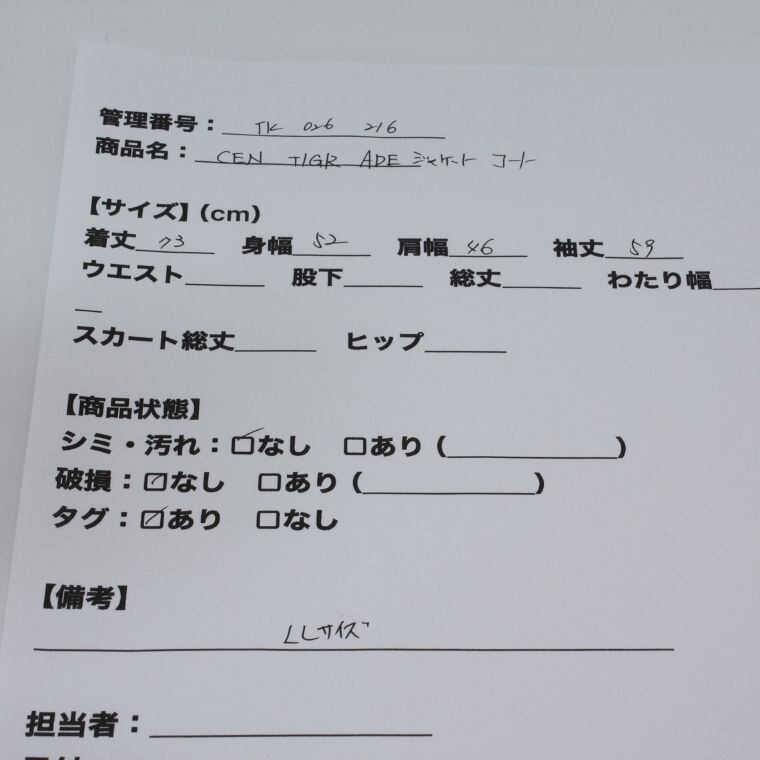 管理番号：TK 026 216
商品名：CEN TIGR ADE ジャケット コート
【サイズ】（cm）
着丈 73 身幅 52 肩幅 46 袖丈 59
ウエスト______ 股下______ 総丈______ わたり幅____
スカート総丈______ ヒップ______
【商品状態】
シミ・汚れ：☑なし □あり（____________）
破損：☑なし □あり（____________）
タグ：☑あり □なし
【備考】
LLサイズ
担当者：____________________